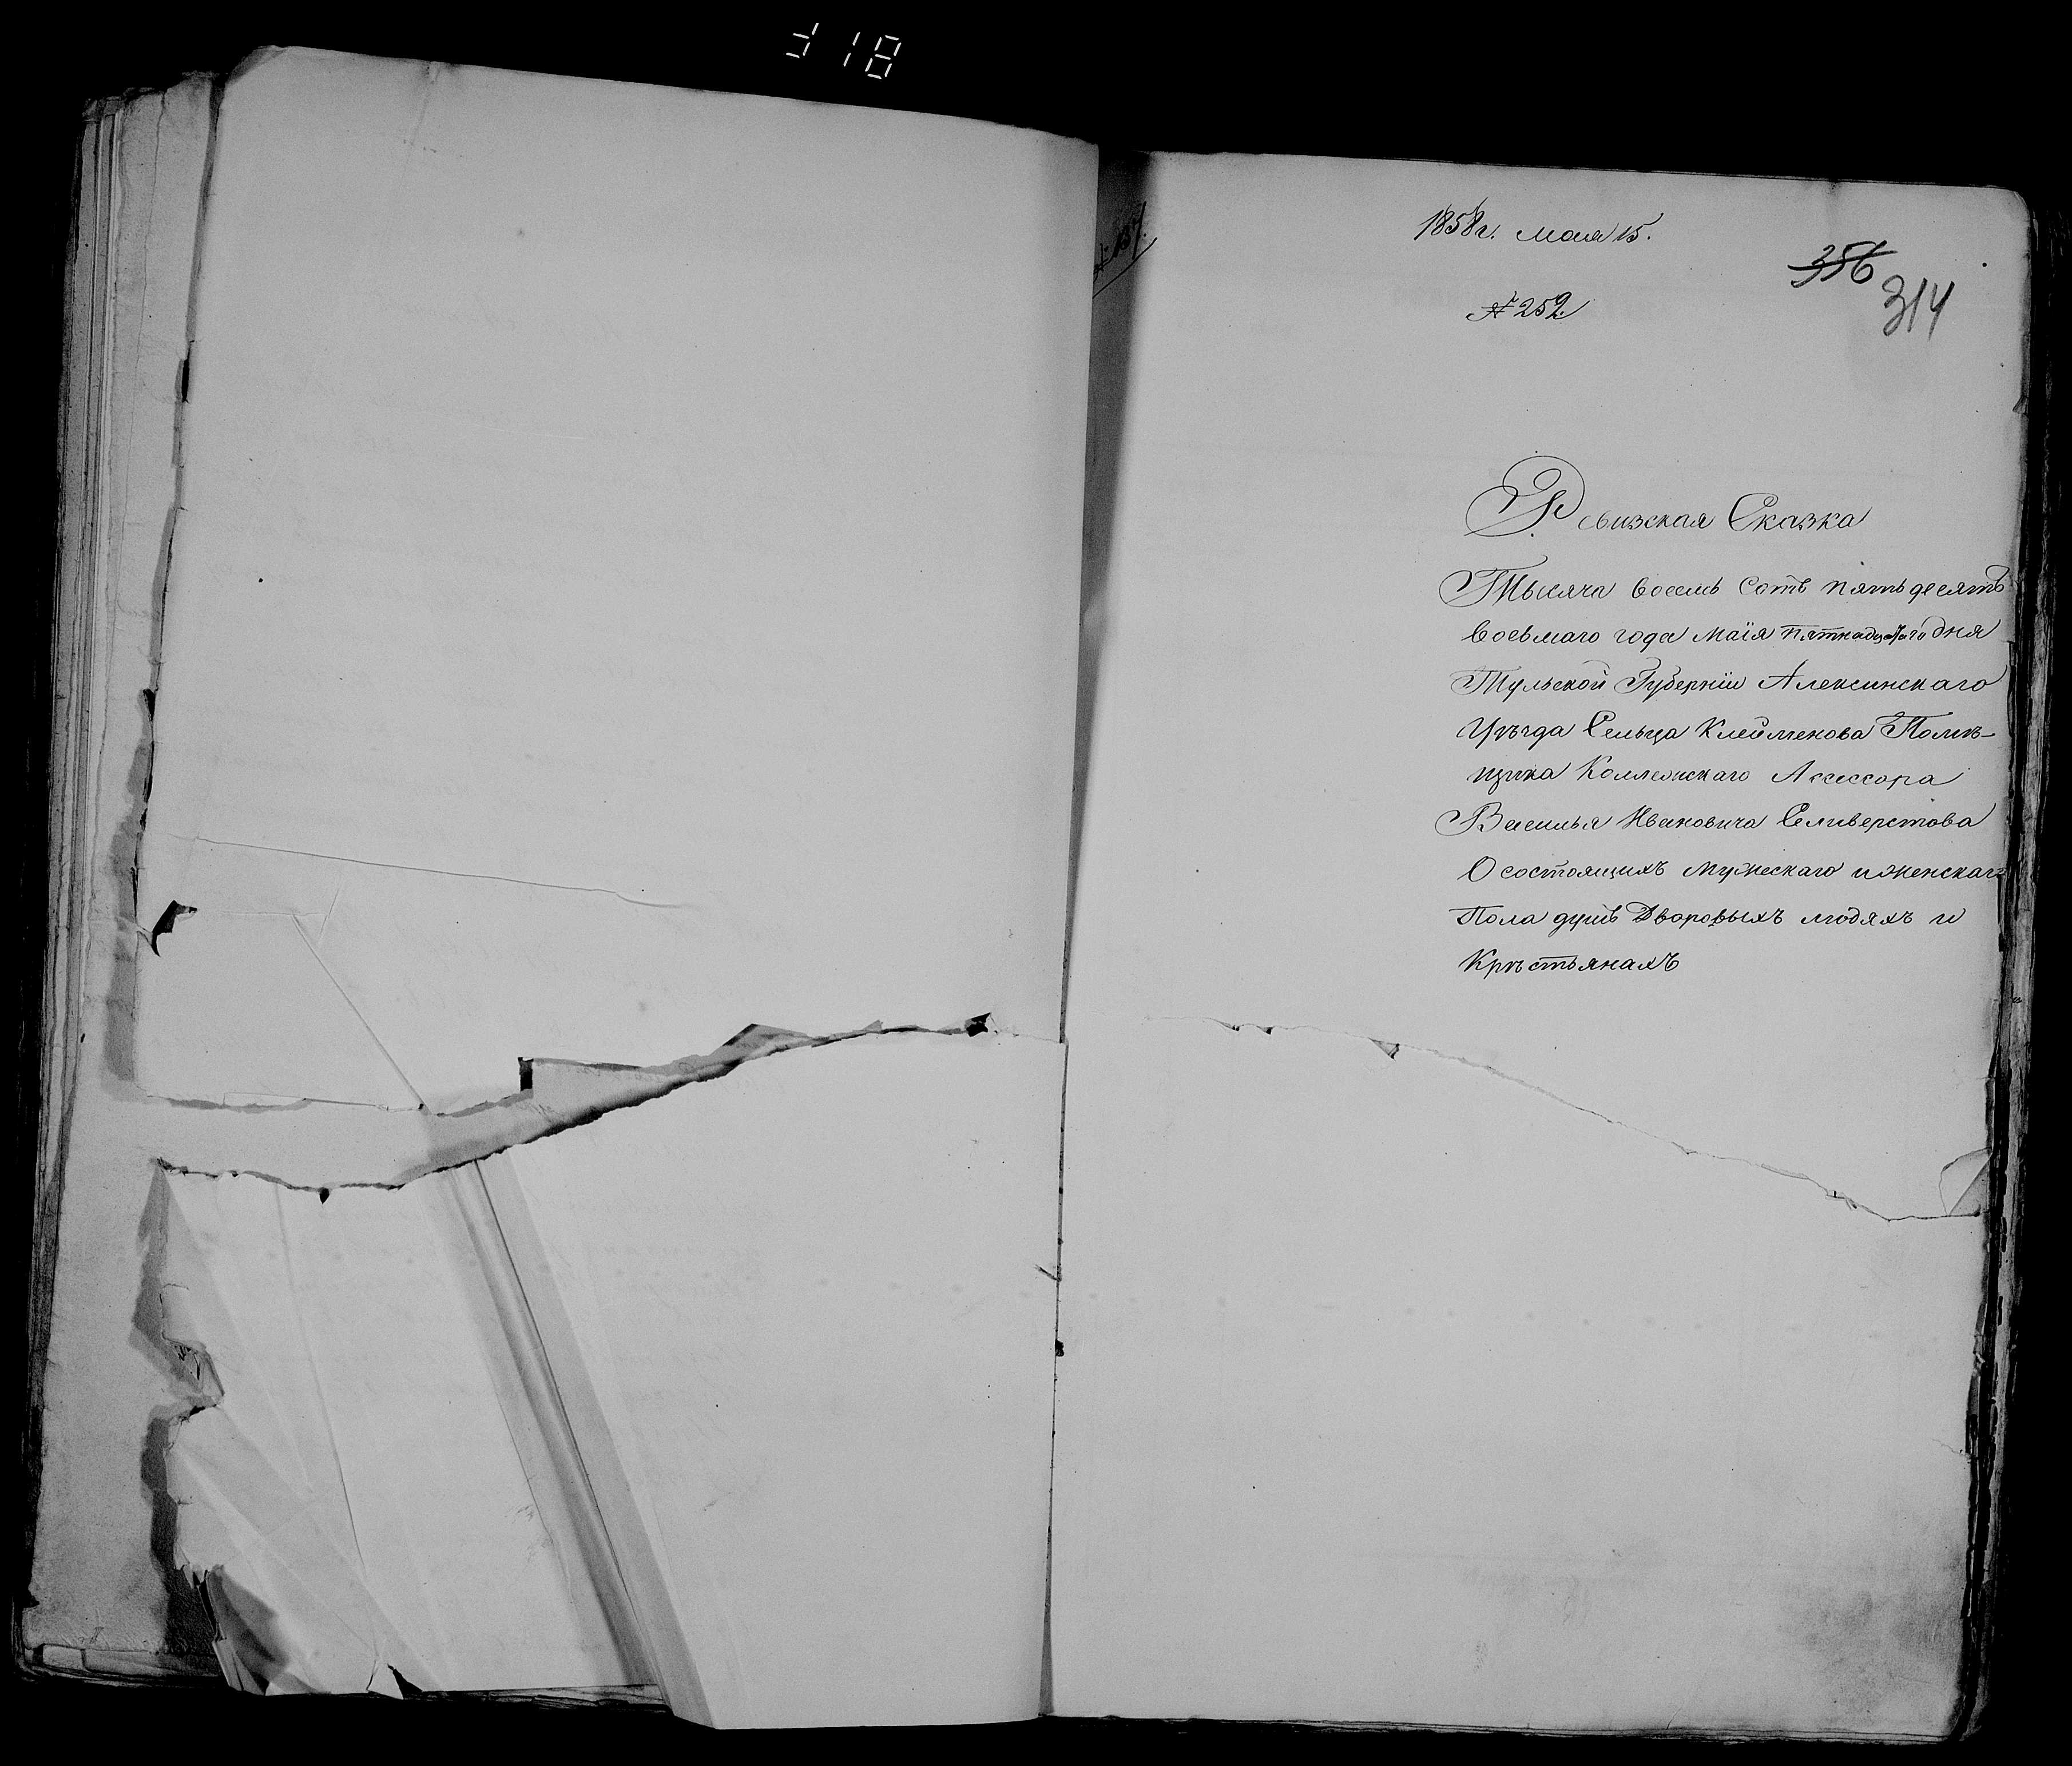 № 157.
1858г. Мая 15.
356
314
№ 252.
Ревизская Сказка
Тысяча восемь сотъ пятьдесятъ
восьмаго года маія пятнадцатаго дня
Тульской Губерніи Алексинскаго
Уѣзда Сельца Клейменова Помѣ-
щика Коллежскаго Асессора
Василья Ивановича Селиверстова
О состоящихъ мужескаго и женскаго
Пола душъ Дворовыхъ людяхъ и
Крѣстьянахъ